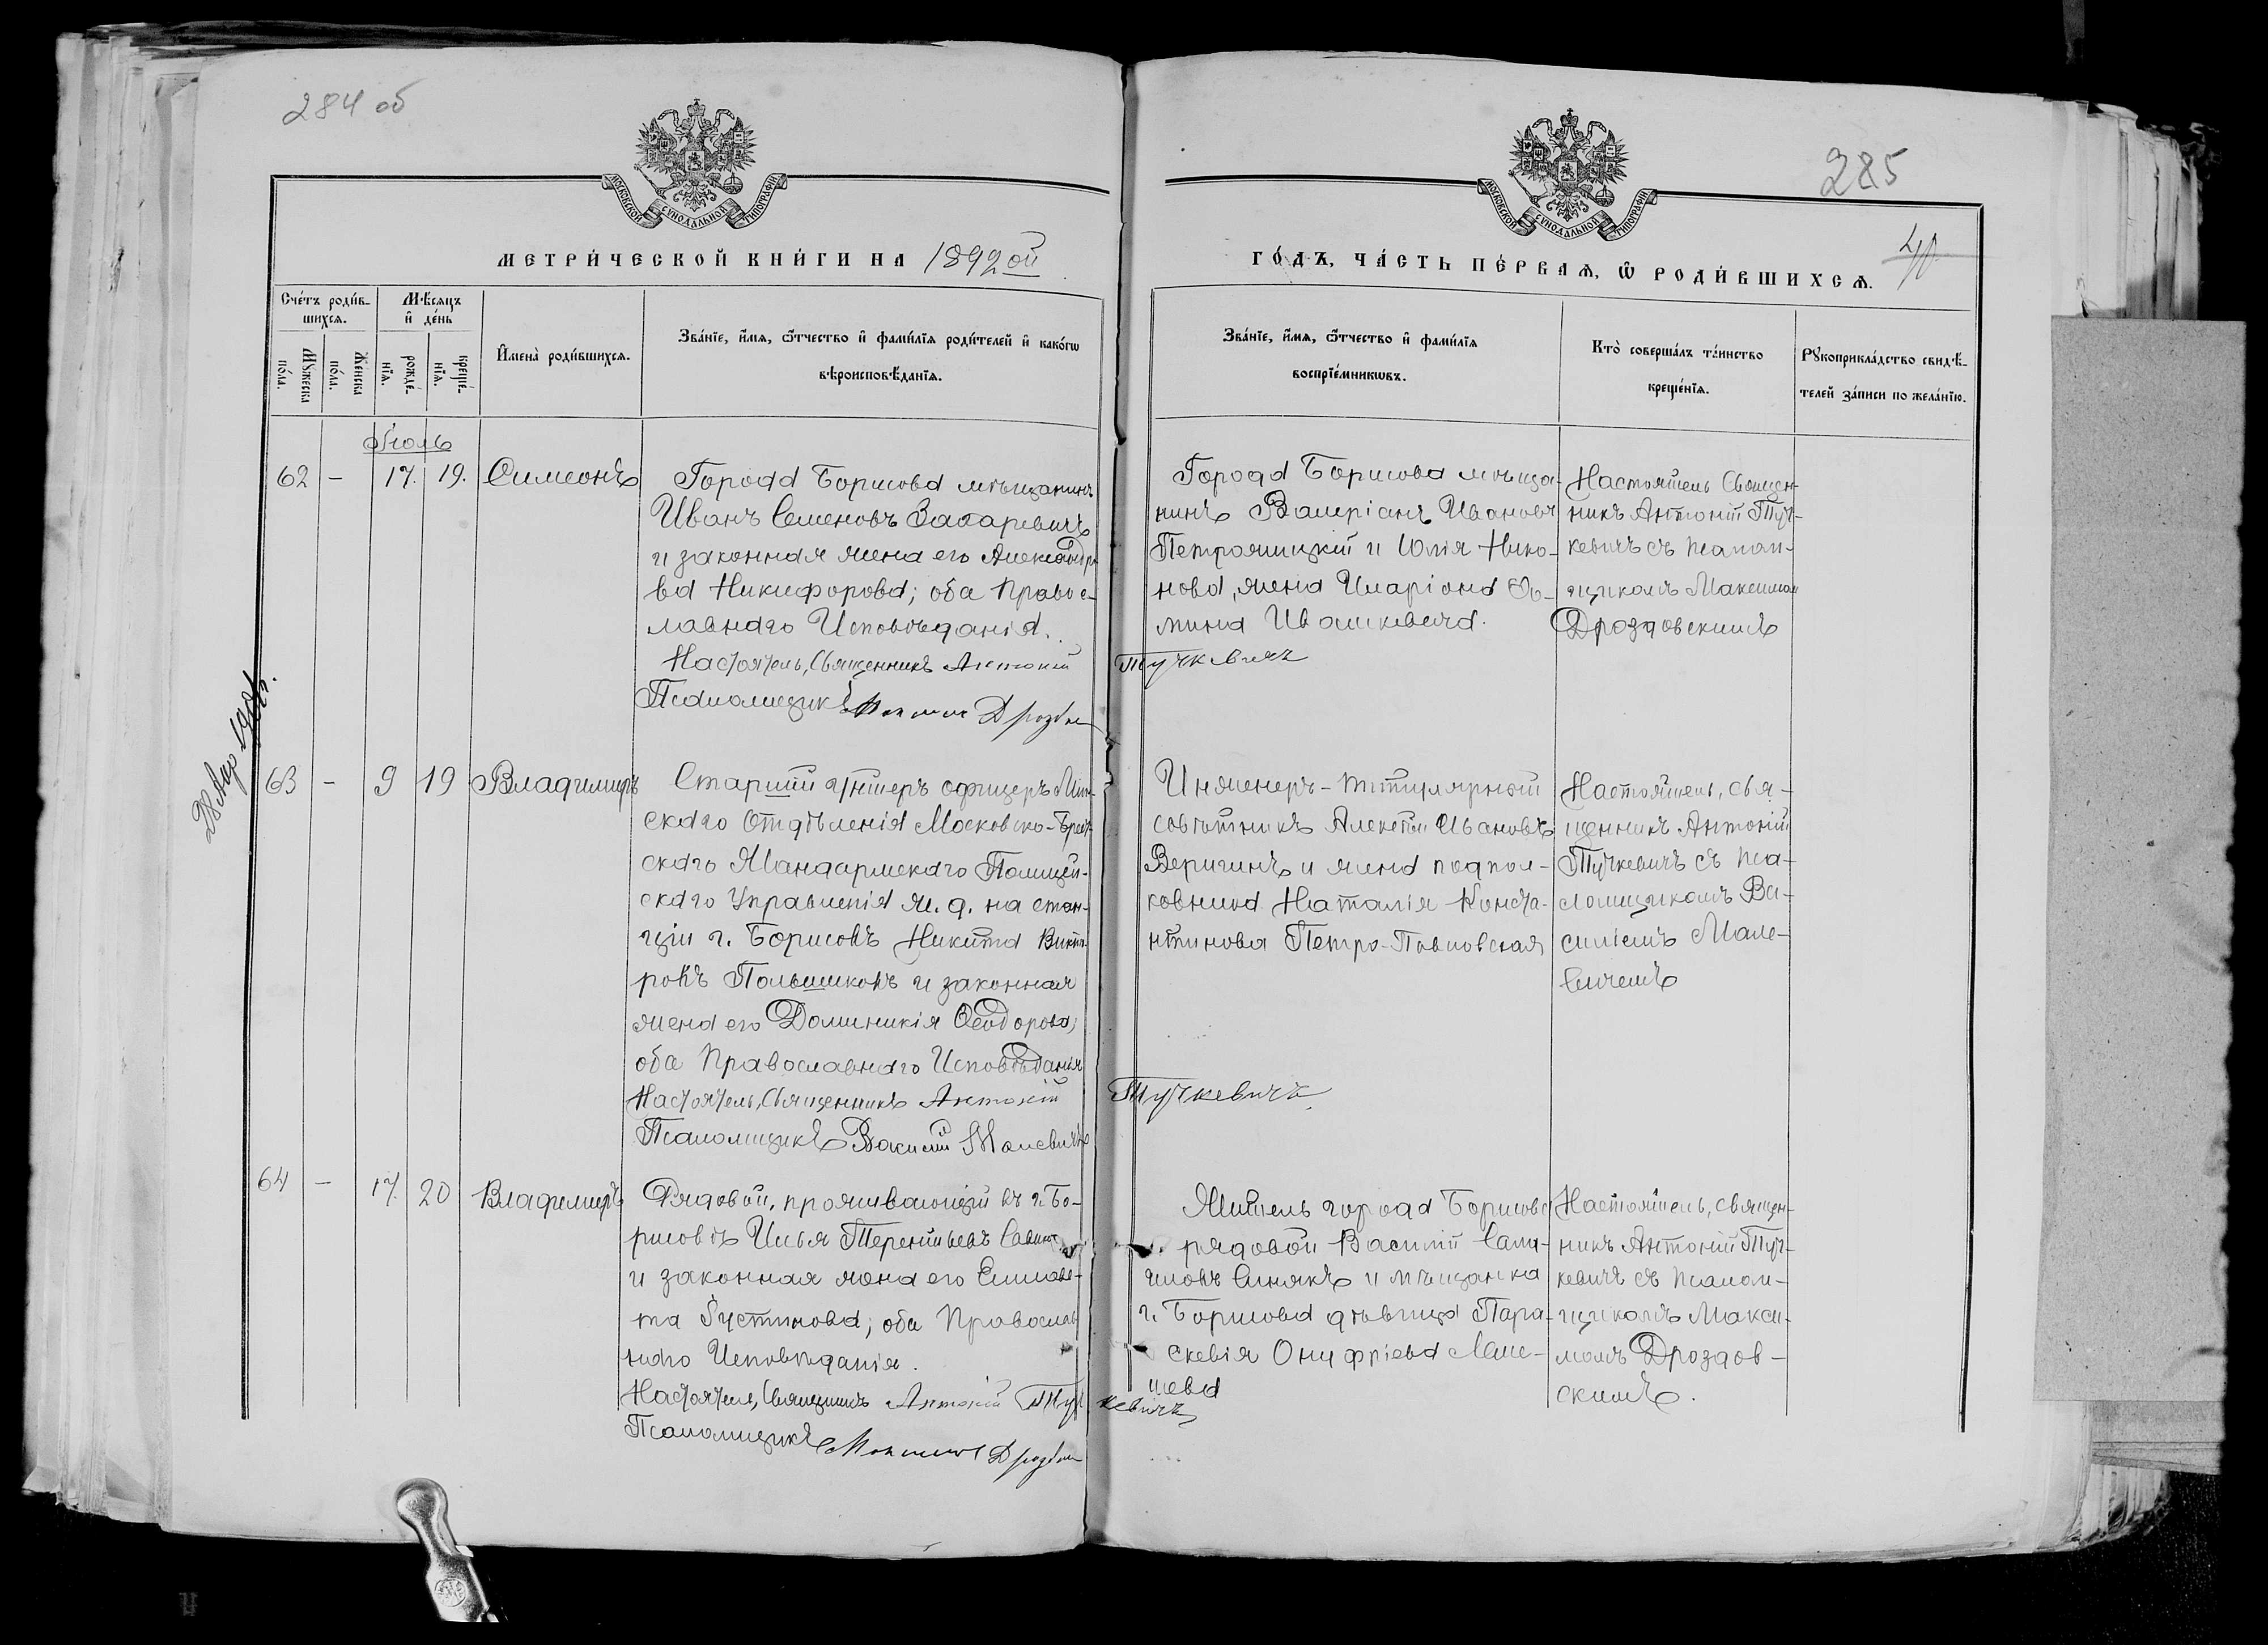 284 об
МОСКОВСКОЙ СУНОДАЛЬНОЙ ТИПОГРАФІИ
МЕТРИ́ЧЕСКОЙ КНИ́ГИ НА 1892 ой
Сче́тъ роди́в-
шихсѧ.
Мѣ́сѧцъ
и҆ де́нь
Мꙋжеска
по́ла.
Же́нска
по́ла.
рожде́-
нїѧ.
креще́-
нїѧ.
И҆мена̀ роди́вшихсѧ.
Зва́нїе, и҆́мѧ, ѻ҆́тчество и҆ фами́лїѧ роди́телей и҆ како́гѡ
вѣроисповѣ́данїѧ.
Іюль
62 - 17. 19. Симеонъ
Города Борисова мѣщанинъ
Иванъ Семеновъ Захаревичъ
и законная жена его Александро
ва Никифорова; оба Правос-
лавнаго Исповѣданія.
Настоятель, Священникъ Антоній
Псаломщикъ Дрозд
28 Апр
63 - 9 19 Владимиръ
Старшій унтеръ офицеръ Мин-
скаго Отдѣленія Московско-Брест-
скаго Жандармскаго Полицей-
скаго Управленія ж. д. на стан-
ціи г. Борисовъ Никита Викто-
ровъ Польшиковъ и законная
жена его Доминикія Ѳеодорова;
оба Православнаго Исповѣданія
Настоятель, Священникъ Антоній
Псаломщикъ Василій Малевичъ
64 - 17. 20 Владимиръ
Рядовой, проживающій въ г. Бо-
рисовѣ Илья Терентьевъ
и законная жена его Елисаве-
та Іустинова; оба Православ
наго Исповѣданія.
Настоятель, Священникъ Антоній Туч
Псаломщикъ Дрозд
285
40
МОСКОВСКОЙ СУНОДАЛЬНОЙ ТИПОГРАФІИ
ГО́ДЪ, ЧА́СТЬ ПЕ́РВАѦ, Ѽ РОДИ́ВШИХСѦ.
Зва́нїе, и҆́мѧ, ѻ҆́тчество и҆ фами́лїѧ
воспрїе́мникѡвъ.
Кто̀ соверша́лъ та́инство
креще́нїѧ.
Рꙋкоприкла́дство свидѣ́-
телей за́писи по жела́нїю.
Города Борисова мѣща-
нинъ Валеріанъ Ивановъ
Петрожицкій и Юлія Нико-
нова, жена Иларіона Ѳо-
мина Ивашкевича.
Тучкевичъ
Настоятель Священ-
никъ Антоній Туч-
кевичъ съ псалом-
щикомъ Максимом
Дроздовскимъ
Инженеръ-титулярный
совѣтникъ Алексѣй Ивановъ
Веригинъ и жена подпол-
ковника Наталія Конста-
нтинова Петро-Павловская
Тучкевичъ
Настоятель, свя-
щенникъ Антоній
Тучкевичъ съ пса-
ломщикомъ Ва-
силіемъ Мале-
вичемъ
Житель города Борисова
рядовой Василій Саму-
иловъ Синякъ и мѣщанка
г. Борисова дѣвица Пара-
скевія Онуфріева
кевичъ
Настоятель, священ-
никъ Антоній Туч-
кевичъ съ псалом-
щикомъ Макси-
момъ Дроздов-
скимъ.